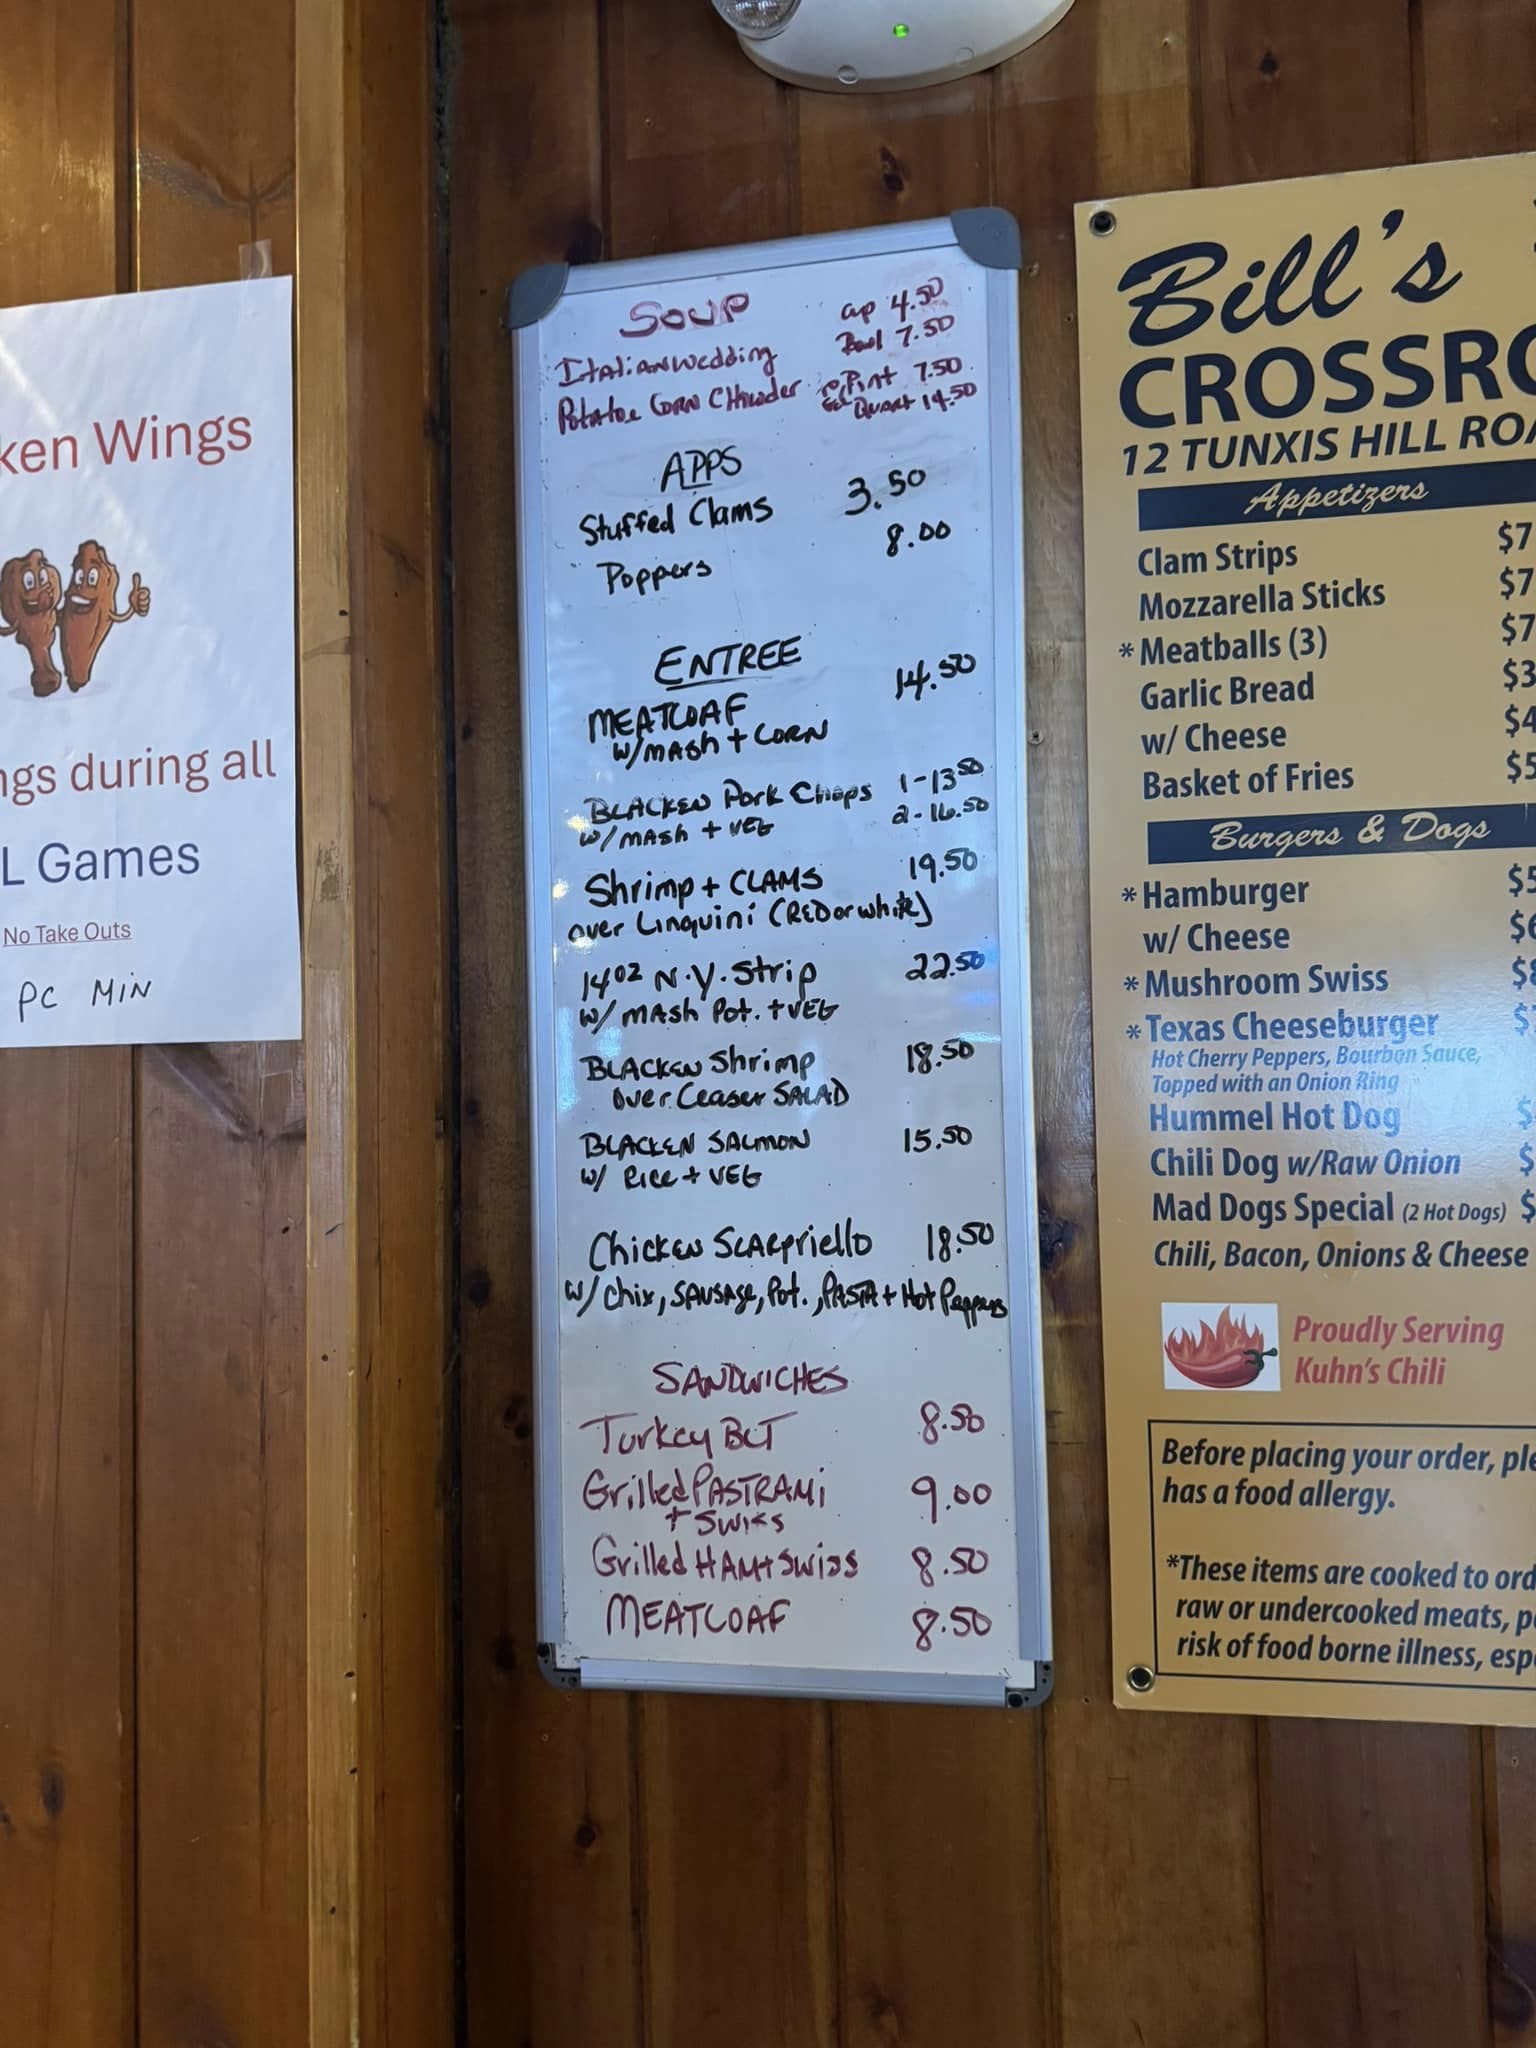 ken Wings
ngs during all
L Games
No Take Outs
PC MIN
SOUP
Cup 4.50
Bowl 7.50
Italian wedding
Potatoe Corn Chowder
Pint 7.50
Quart 14.50
APPS
Stuffed Clams 3.50
Poppers 8.00
ENTREE
MEATLOAF 14.50
w/mash + CORN
BLACKEN Pork Chops 1-13.50
w/mash + VEG 2-16.50
Shrimp + CLAMS 19.50
over Linquini (RED or white)
14oz N.Y. Strip 22.50
w/ mash Pot. + VEG
BLACKEN Shrimp 18.50
over Ceaser SALAD
BLACKEN SALMON 15.50
w/ Rice + VEG
Chicken Scarpriello 18.50
w/ chix, SAUSAge, Pot., PASTA + Hot Peppers
SANDWICHES
Turkey BLT 8.50
Grilled PASTRAMi 9.00
+ Swiss
Grilled HAM + Swiss 8.50
MEATLOAF 8.50
Bill's
CROSSRO
12 TUNXIS HILL ROA
Appetizers
Clam Strips $7
Mozzarella Sticks $7
*Meatballs (3) $7
Garlic Bread $3
w/ Cheese $4
Basket of Fries $5
Burgers & Dogs
*Hamburger $5
w/ Cheese $6
*Mushroom Swiss $8
*Texas Cheeseburger $
Hot Cherry Peppers, Bourbon Sauce,
Topped with an Onion Ring
Hummel Hot Dog $
Chili Dog w/Raw Onion $
Mad Dogs Special (2 Hot Dogs) $
Chili, Bacon, Onions & Cheese
Proudly Serving
Kuhn's Chili
Before placing your order, ple
has a food allergy.
*These items are cooked to ord
raw or undercooked meats, p
risk of food borne illness, espe